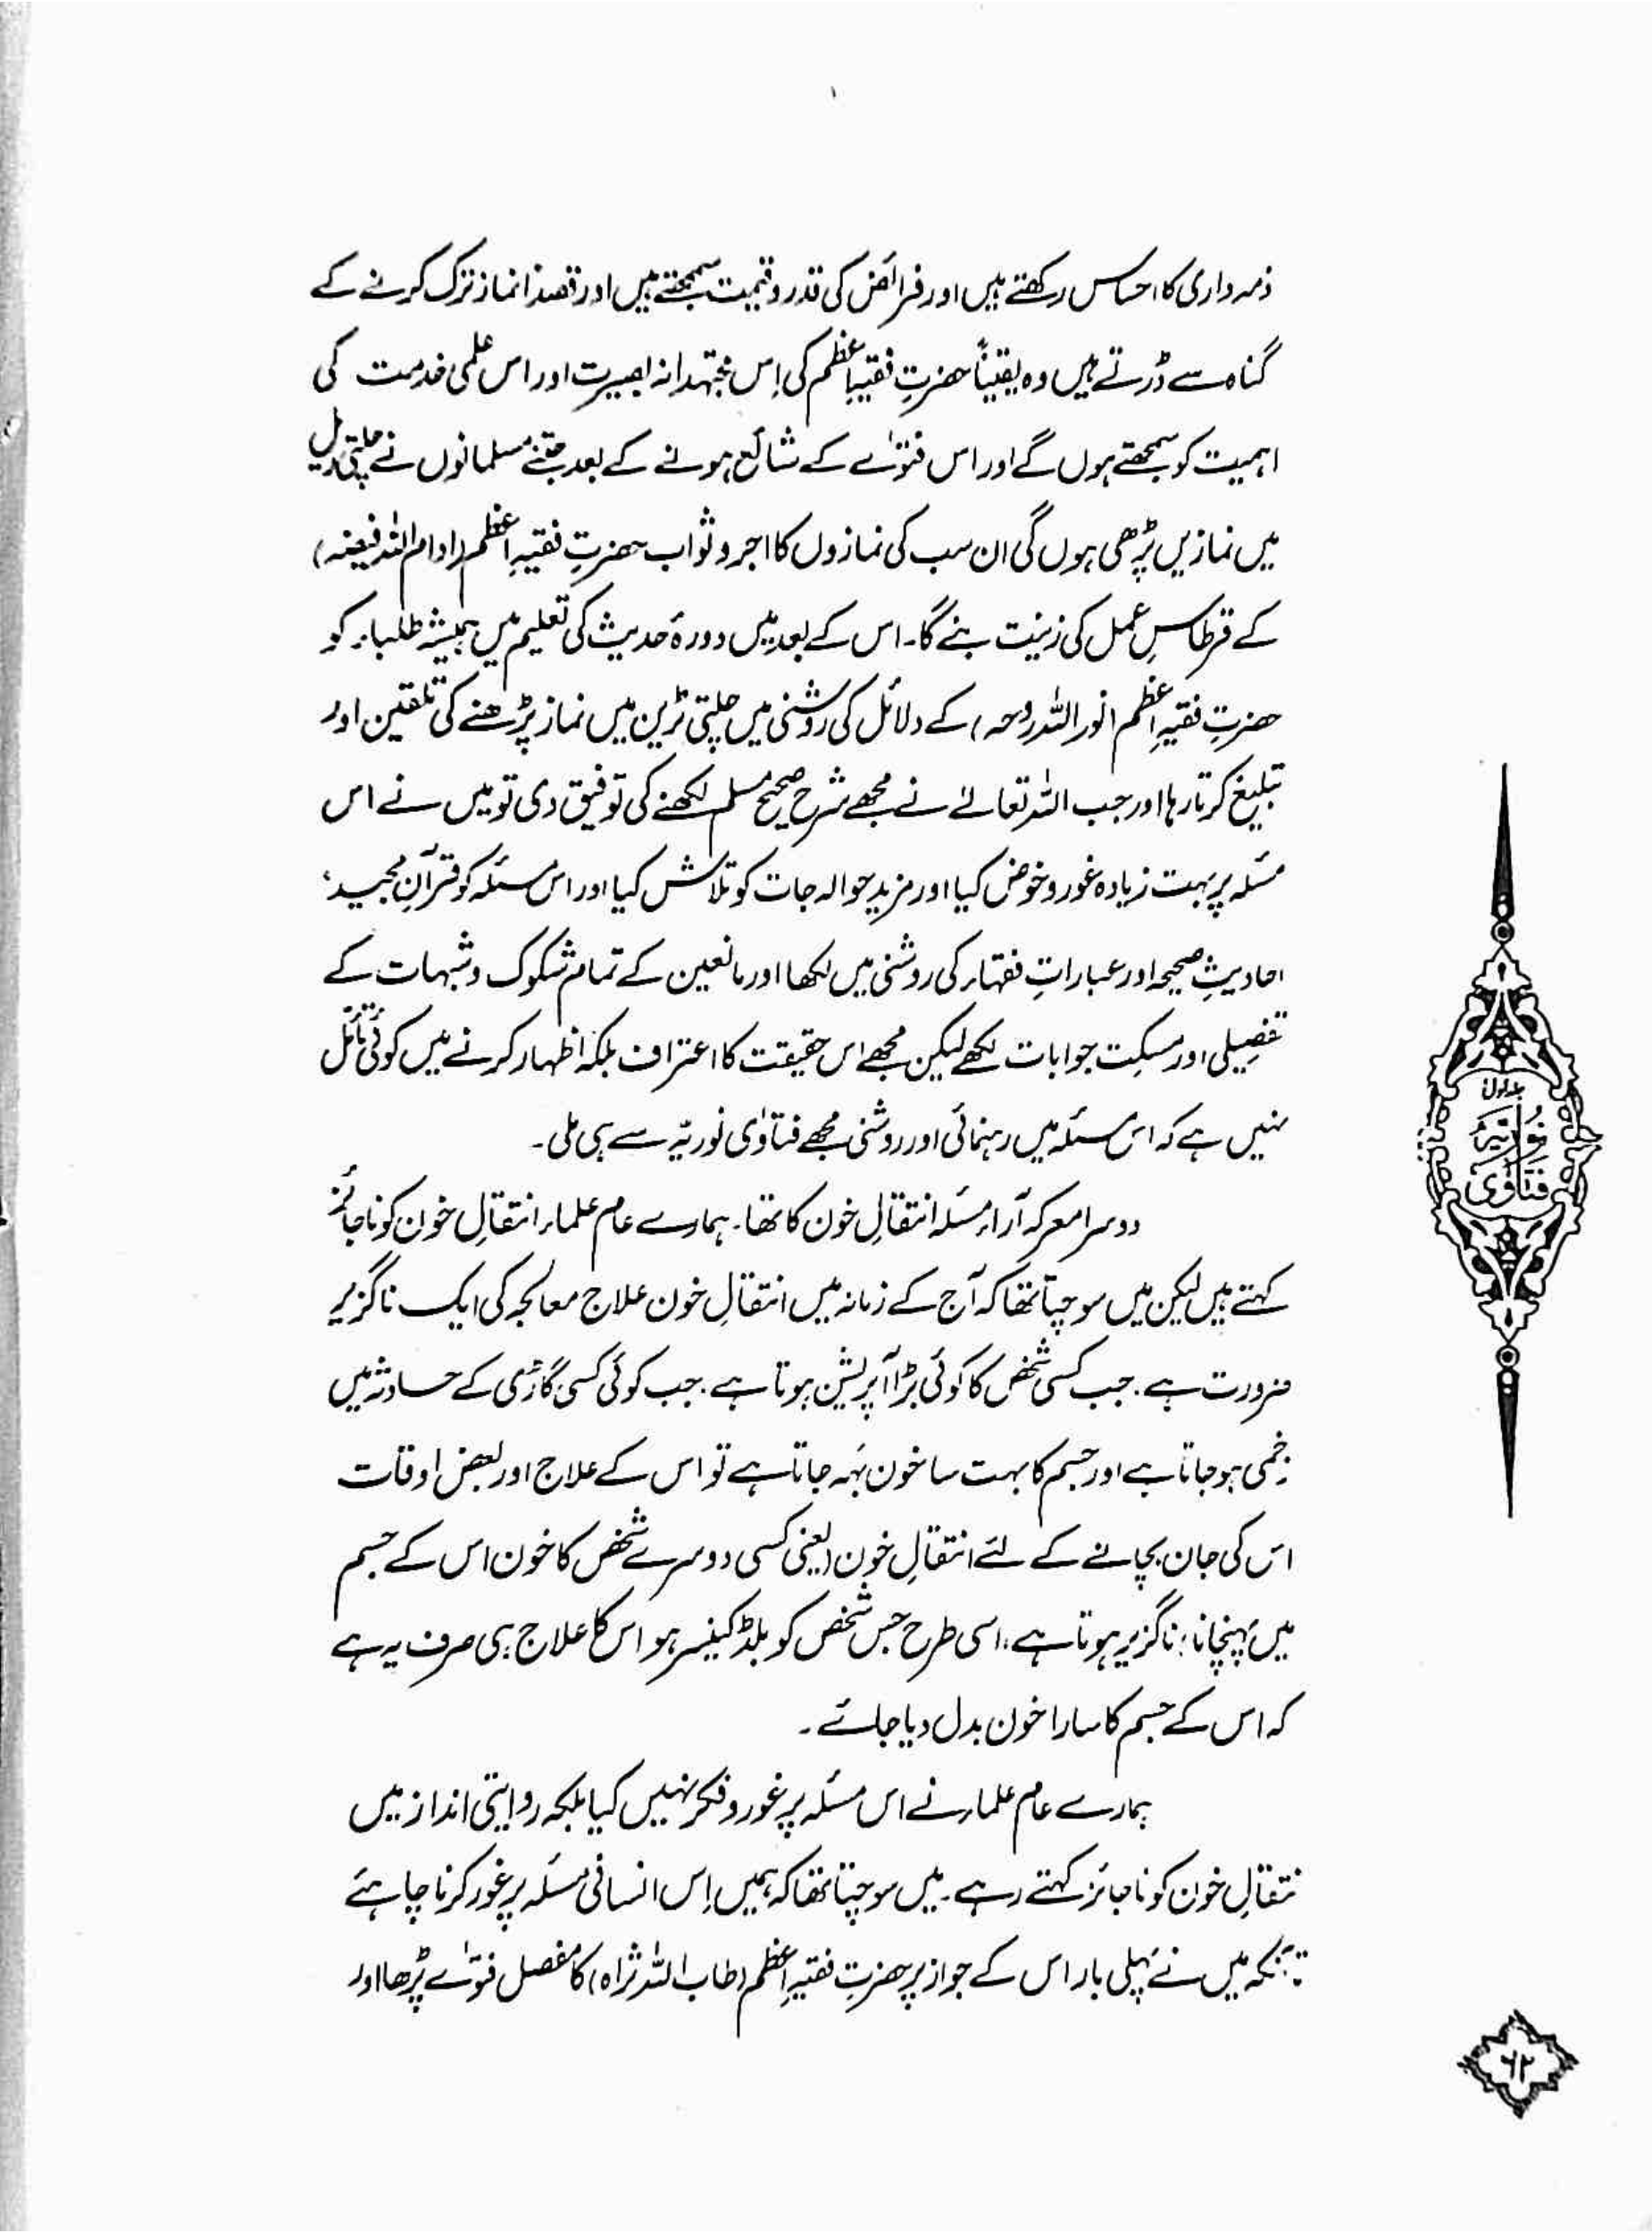 ذمہ داری کا احساس رکھتے ہیں اور فرائض کی قدر و قیمت سمجھتے ہیں اور قصداً نماز ترک کرنے کے
گناہ سے ڈرتے ہیں وہ یقیناً حضرتِ فقیہِ اعظم کی اِس مجتہدانہ بصیرت اور اس علمی خدمت کی
اہمیت کو سمجھتے ہوں گے اور اس فتوٰے کے شائع ہونے کے بعد جتنے مسلمانوں نے چلتی ریل
میں نمازیں پڑھی ہوں گی ان سب کی نمازوں کا اجر و ثواب حضرتِ فقیہِ اعظم (ادام اللہ فیضہ)
کے قرطاسِ عمل کی زینت بنے گا۔ اس کے بعد میں دورۂ حدیث کی تعلیم میں ہمیشہ طلباء کو
حضرتِ فقیہِ اعظم (نور اللہ روحہ) کے دلائل کی روشنی میں چلتی ٹرین میں نماز پڑھنے کی تلقین اور
تبلیغ کرتا رہا اور جب اللہ تعالےٰ نے مجھے شرح صحیح مسلم لکھنے کی توفیق دی تو میں نے اس
مسئلہ پر بہت زیادہ غور و خوض کیا اور مزید حوالہ جات کو تلاش کیا اور اس مسئلہ کو قرآنِ مجید،
احادیثِ صحیحہ اور عباراتِ فقہاء کی روشنی میں لکھا اور مانعین کے تمام شکوک و شبہات کے
تفصیلی اور مسکِت جوابات لکھے لیکن مجھے اس حقیقت کا اعتراف بلکہ اظہار کرنے میں کوئی تأمّل
نہیں ہے کہ اس مسئلہ میں رہنمائی اور روشنی مجھے فتاوٰی نوریّہ سے ہی ملی۔
دوسرا معرکہ آراء مسئلہ انتقالِ خون کا تھا۔ ہمارے عام علماء انتقالِ خون کو ناجائز
کہتے ہیں لیکن میں سوچتا تھا کہ آج کے زمانہ میں انتقالِ خون علاج معالجہ کی ایک ناگزیر
ضرورت ہے۔ جب کسی شخص کا کوئی بڑا آپریشن ہوتا ہے۔ جب کوئی کسی گاڑی کے حادثہ میں
زخمی ہوجاتا ہے اور جسم کا بہت سا خون بَہہ جاتا ہے تو اس کے علاج اور بعض اوقات
اس کی جان بچانے کے لئے انتقالِ خون (یعنی کسی دوسرے شخص کا خون اس کے جسم
میں پہنچانا) ناگزیر ہوتا ہے، اسی طرح جس شخص کو بلڈ کینسر ہو اس کا علاج ہی صرف یہ ہے
کہ اس کے جسم کا سارا خون بدل دیا جائے۔
ہمارے عام علماء نے اس مسئلہ پر غور و فکر نہیں کیا بلکہ روایتی انداز میں
نتقالِ خون کو ناجائز کہتے رہے۔ میں سوچتا تھا کہ ہمیں اِس انسانی مسئلہ پر غور کرنا چاہئے
تا آنکہ میں نے پہلی بار اس کے جواز پر حضرتِ فقیہِ اعظم (طاب اللہ ثراہ) کا مفصل فتوٰے پڑھا اور
جلد اول
نوریّہ
فتاوٰی
۶۲